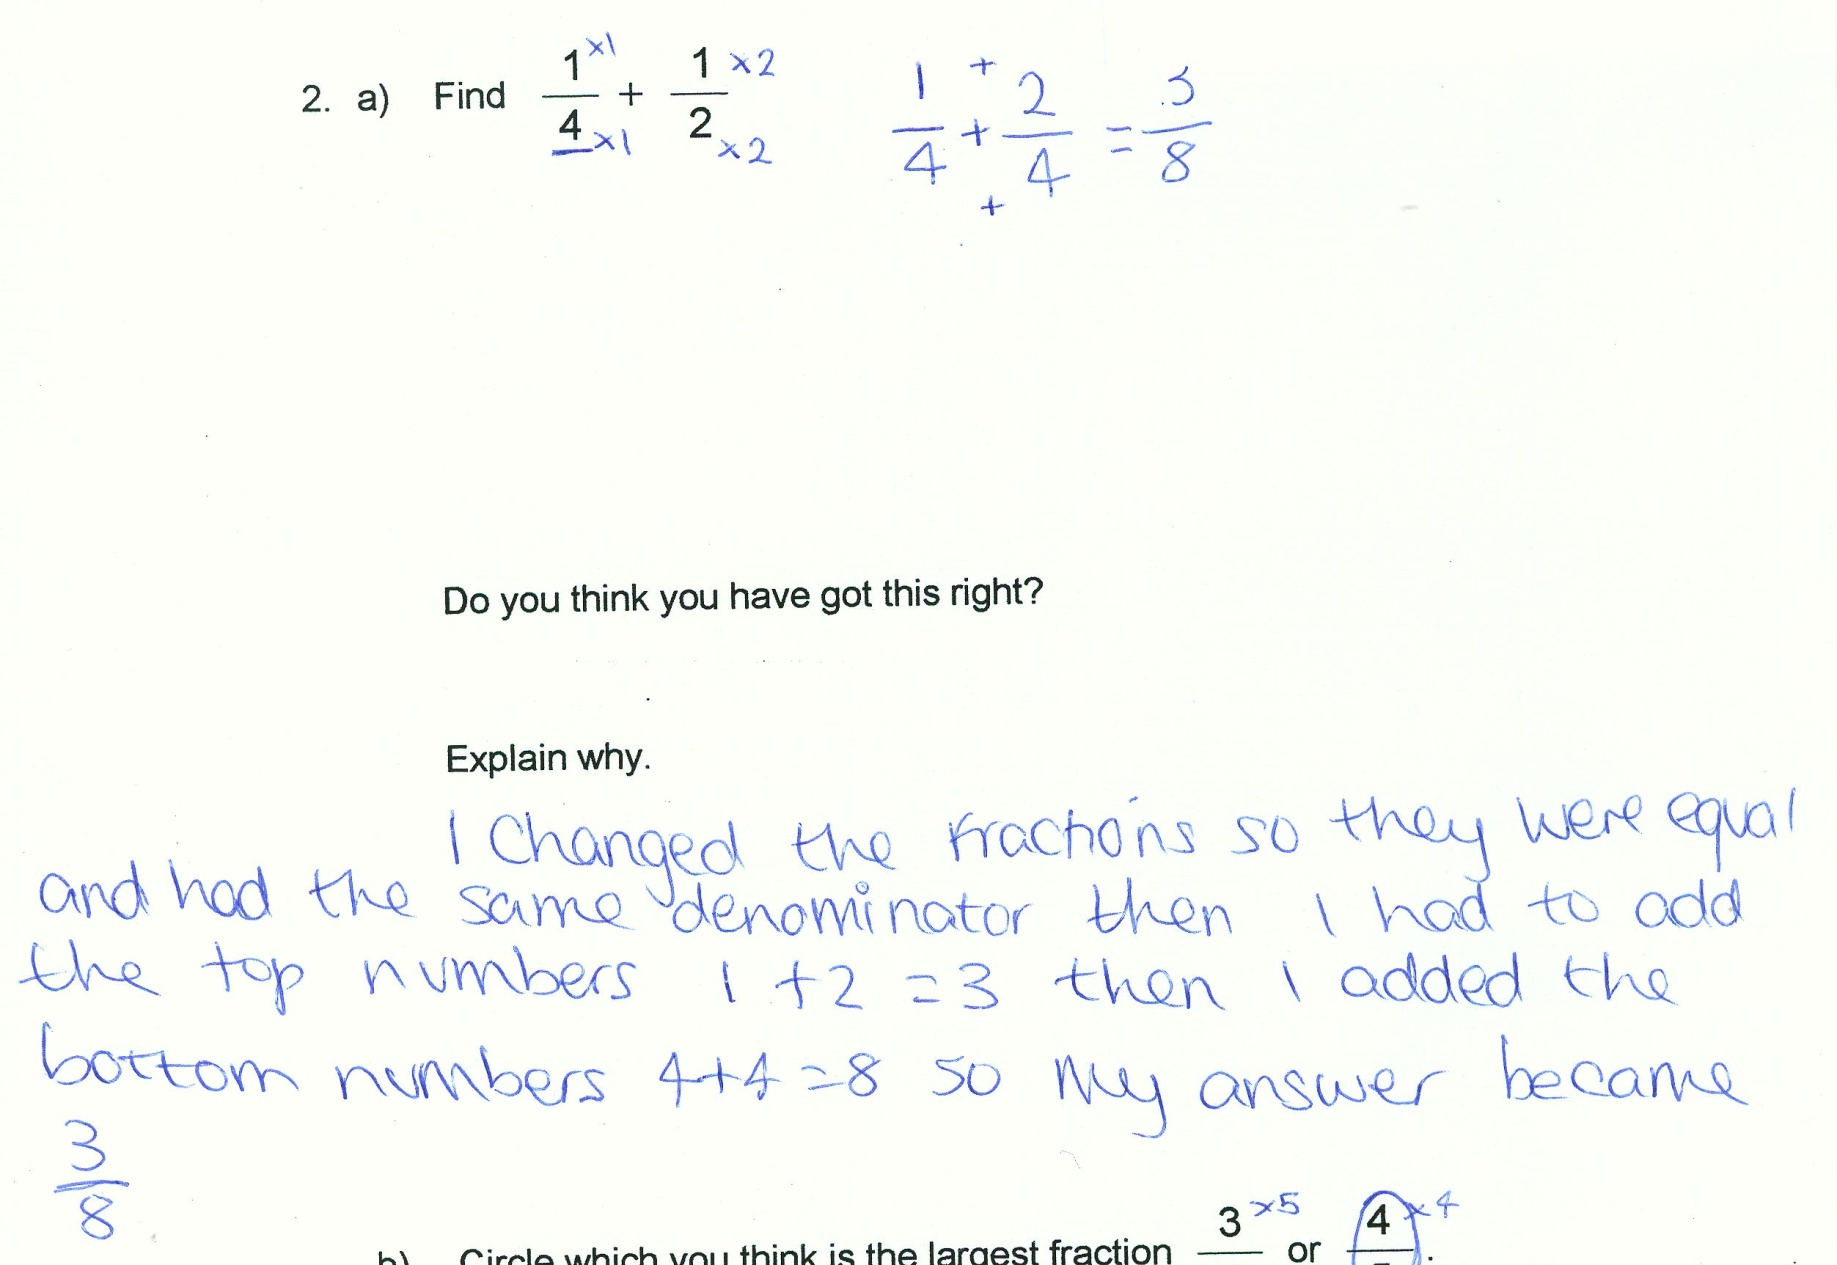 2. a) Find 1/4 + 1/2 ×1 ×1 ×2 ×2 1/4 + 2/4 = 3/8 + +
Do you think you have got this right?
Explain why.
I Changed the fractions so they were equal
and had the same denominator then I had to add
the top numbers 1 + 2 = 3 then I added the
bottom numbers 4+4=8 so my answer became
3/8
b) Circle which you think is the largest fraction 3 ×5 or 4 ×4 .